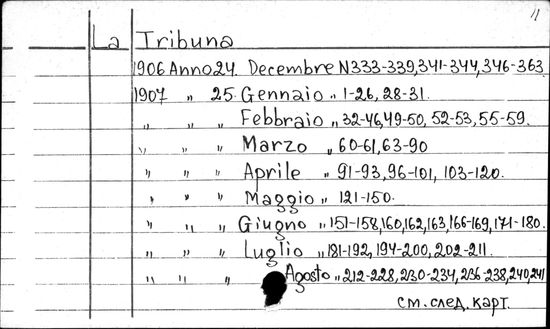 11
La Tribuna
1906 Anno 24. Decembre N333-339,341-344,346-363
1907 „ 25. Gennaio „ 1-26, 28-31.
„ „ „ Febbraio „ 32-46,49-50, 52-53, 55-59.
„ „ „ Marzo „ 60-61, 63-90
„ „ „ Aprile „ 91-93, 96-101, 103-120.
„ „ „ Maggio „ 121-150.
„ „ „ Giugno „ 151-158,160,162,163,166-169,171-180.
„ „ „ Luglio „ 181-192, 194-200, 202-211.
„ „ „ Agosto „ 212-228, 230-234, 236-238,240,241
см. след. карт.